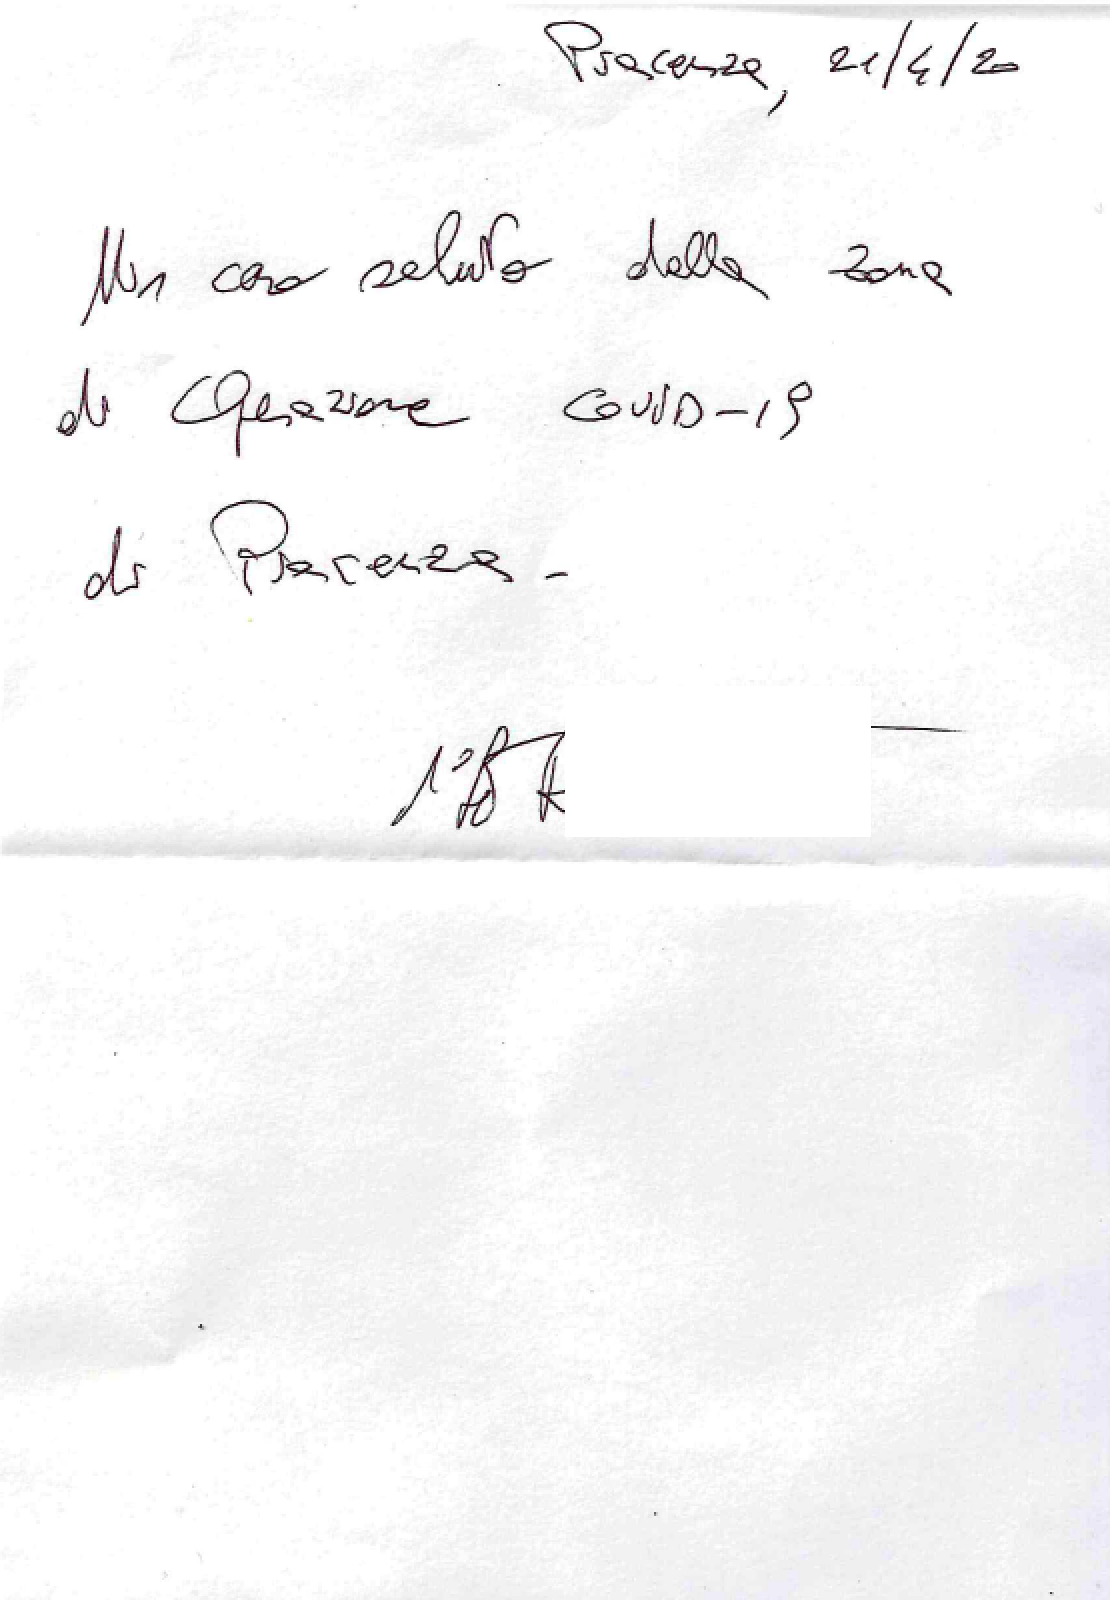 Piacenza, 21/4/20
Un caro saluto dalla zona
di Operazione COVID-19
di Piacenza -